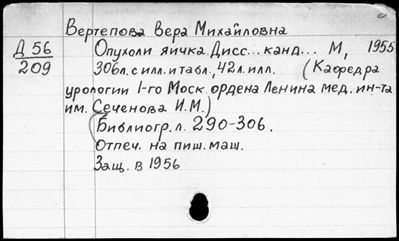 Вертепова Вера Михайловна
Д 56
209
Опухоли яичка. Дисс... канд... М, 1955
306л. с илл. и табл., 42л. илл. (Кафедра
урологии 1-го Моск. ордена Ленина мед. ин-та
им. Сеченова И.М.)
(Библиогр. л. 290-306.
Отпеч. на пиш. маш.
Защ. в 1956